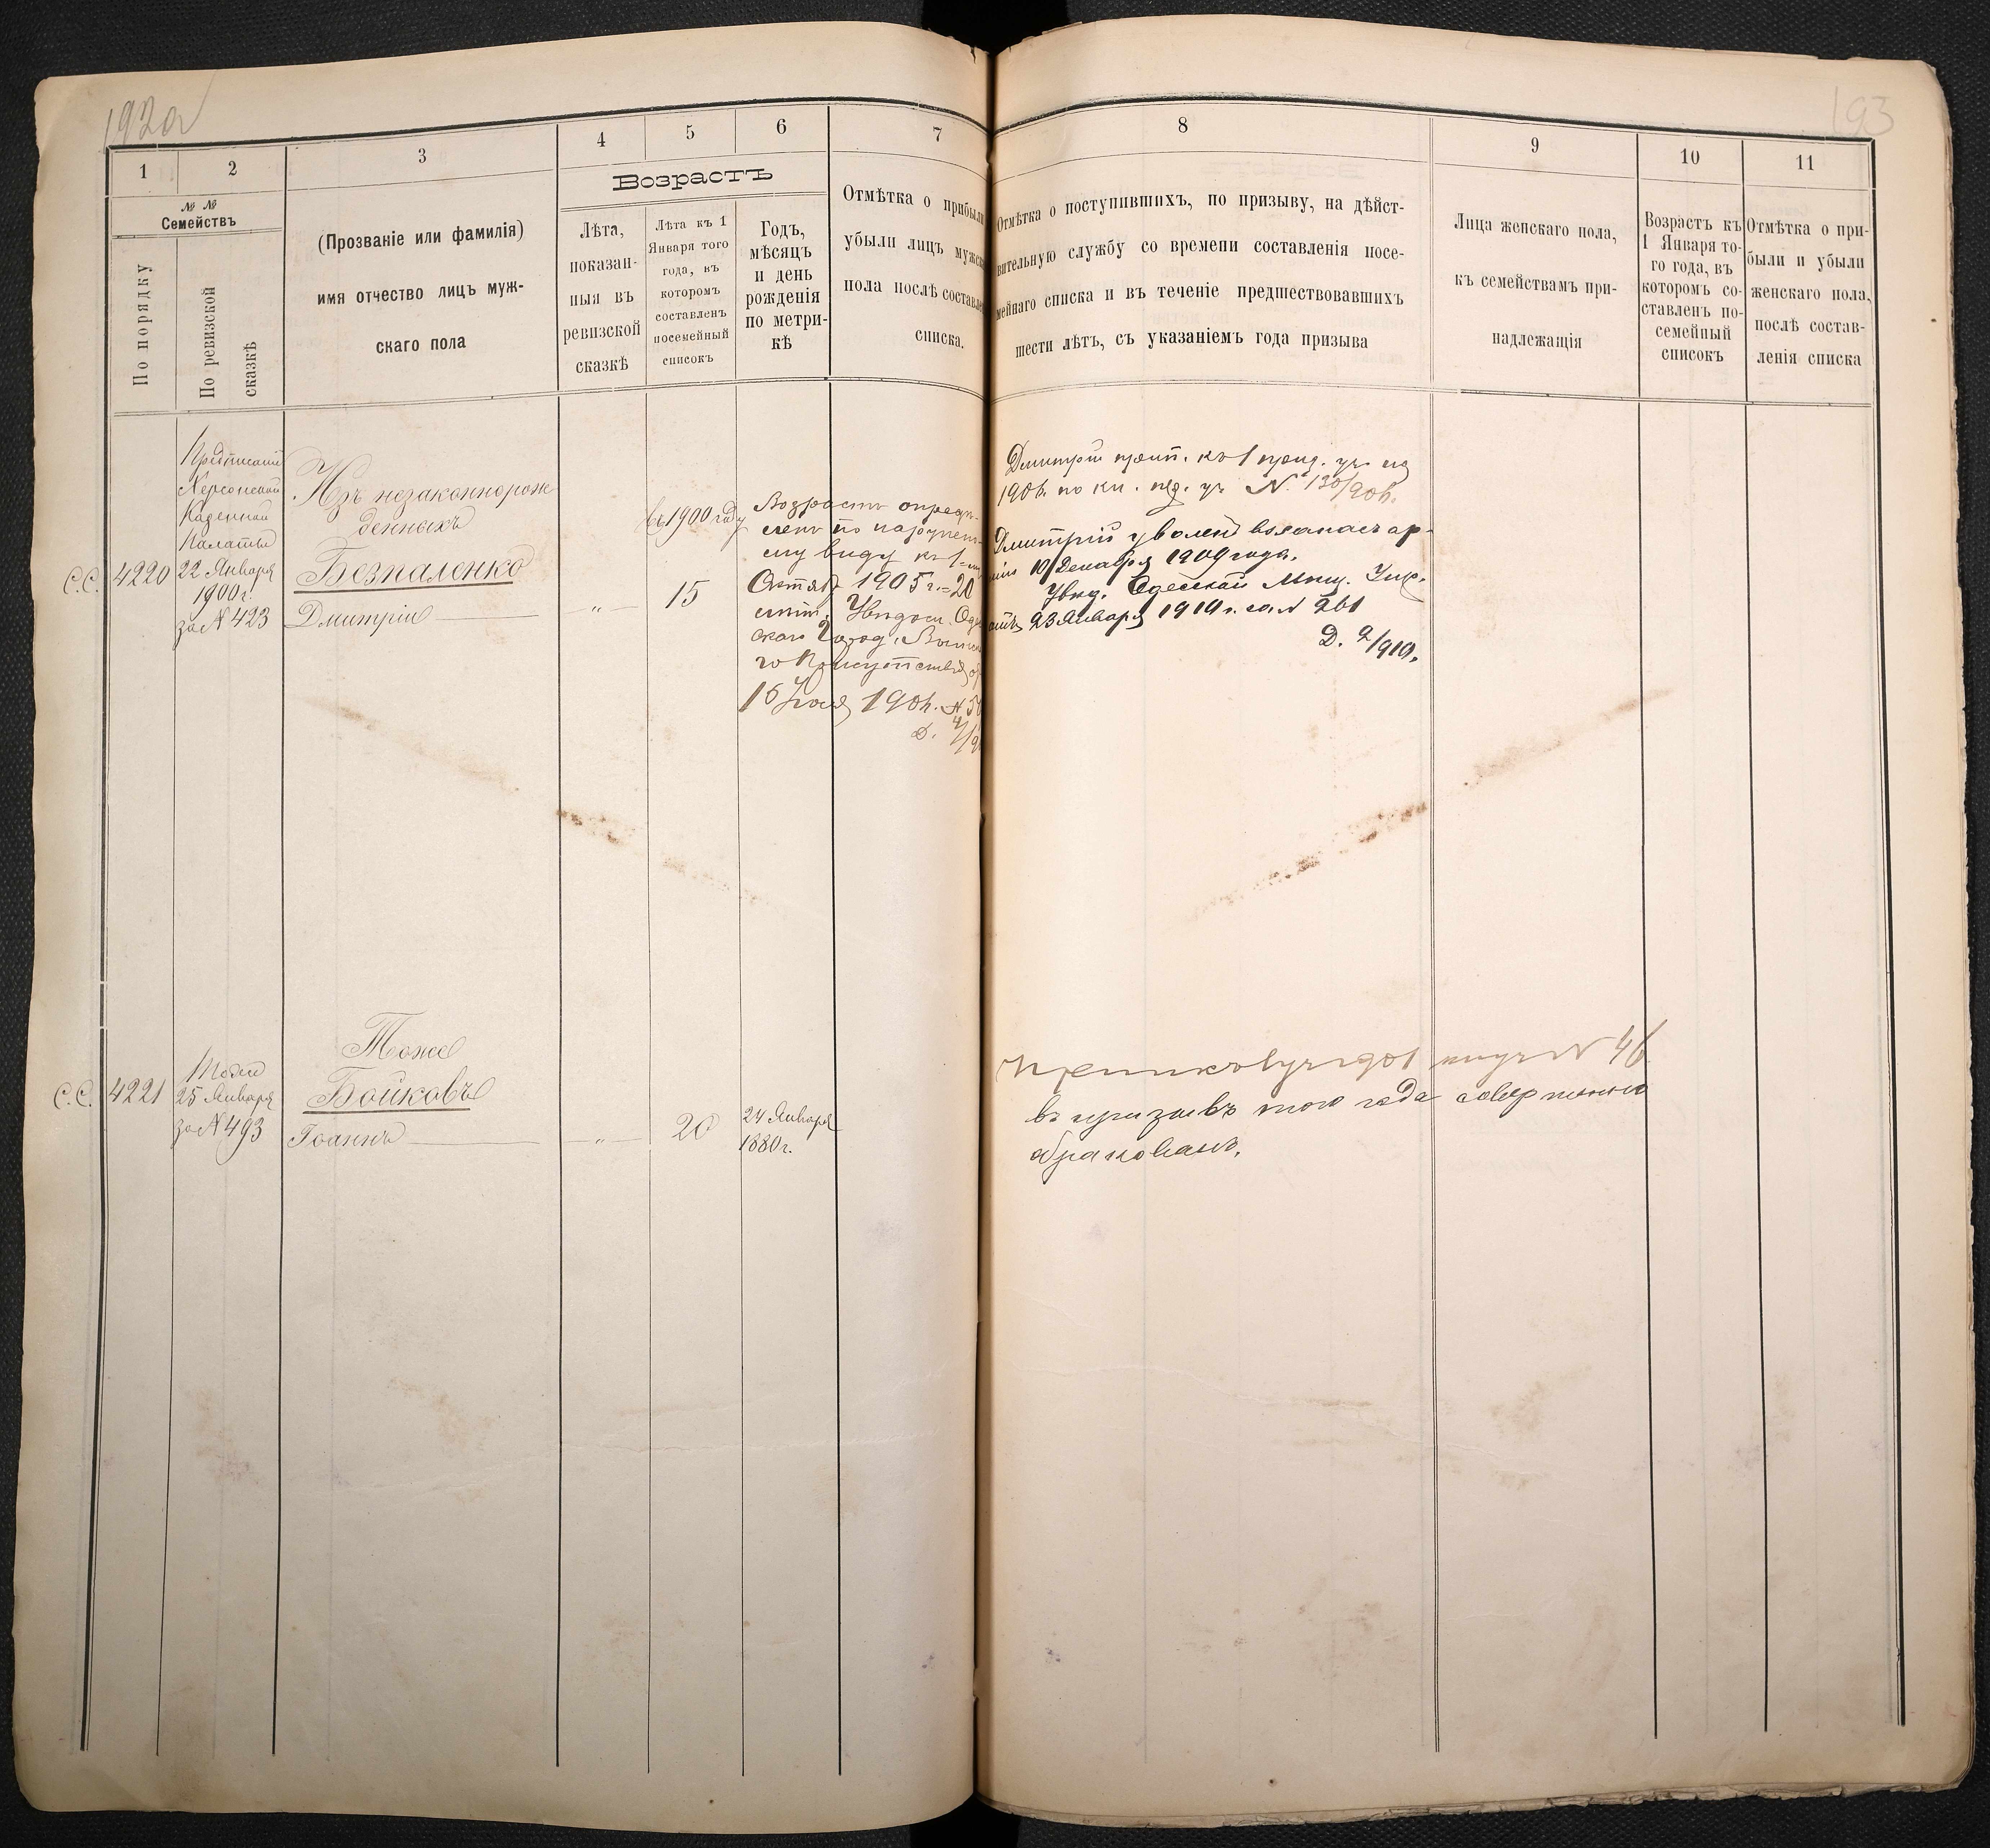 192а
193
1
2
3
4
5
6
7
8
9
10
11
№ №
Семействъ
По порядку
По ревизской
сказкѣ
(Прозваніе или фамилія)
имя отчество лицъ муж-
скаго пола
Возрастъ
Лѣта,
показан-
ныя въ
ревизской
сказкѣ
Лѣта къ 1
Января того
года, въ
которомъ
составленъ
посемейный
списокъ
Годъ,
мѣсяцъ
и день
рожденія
по метри-
кѣ
Отмѣтка о прибыли
убыли лицъ мужск
пола послѣ составлен
списка.
Отмѣтка о поступившихъ, по призыву, на дѣйст-
вительную службу со времени составленія посе-
мейнаго списка и въ теченіе предшествовавшихъ
шести лѣтъ, съ указаніемъ года призыва
Лица женскаго пола,
къ семействамъ при-
надлежащія
Возрастъ къ
1 Января то-
го года, въ
которомъ со-
ставленъ по-
семейный
списокъ
Отмѣтка о при-
были и убыли
женскаго пола,
послѣ состав-
ленія списка
С.С.
4220
Предписаніе
Херсонской
Казенной
Палаты
22 Января
1900 г.
за № 423
Изъ незаконнорож
денныхъ
Безпаленко
Дмитрій
"
въ 1900 году
15
Возрастъ опредѣ-
ленъ по наружн
му виду къ 1
Октяб 1905 г. = 20
лѣтъ. Увѣдом. Оде
скаго Город. Воинск
го Присутствія от
15 1906. №
Д.
Дмитрій прип. къ 1 приз. уч. на
1906. по кн. пр. уч. № 130/906.
Дмитрій уволенъ въ запасъ ар-
міи 10 Декабря 1909 года.
Увѣд. Одесской Мѣщ. Упр.
23 Января 1910 г. за № 261
Д. 2/910.
С.С.
4221
Тоже
25 Января
за № 493
Тоже
Бойковъ
Іоаннъ
"
20
24 Января
1880 г.
№ 46
въ призывъ того года совершенно
бракованъ.